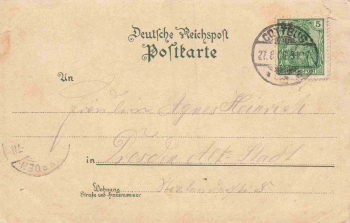 Deutsche Reichspost
Postkarte
5
COTTBUS
27.8
An
Fräulein Agnes Heinrich
in Dresden Alt-Stadt
Wohnung
Straße und Hausnummer